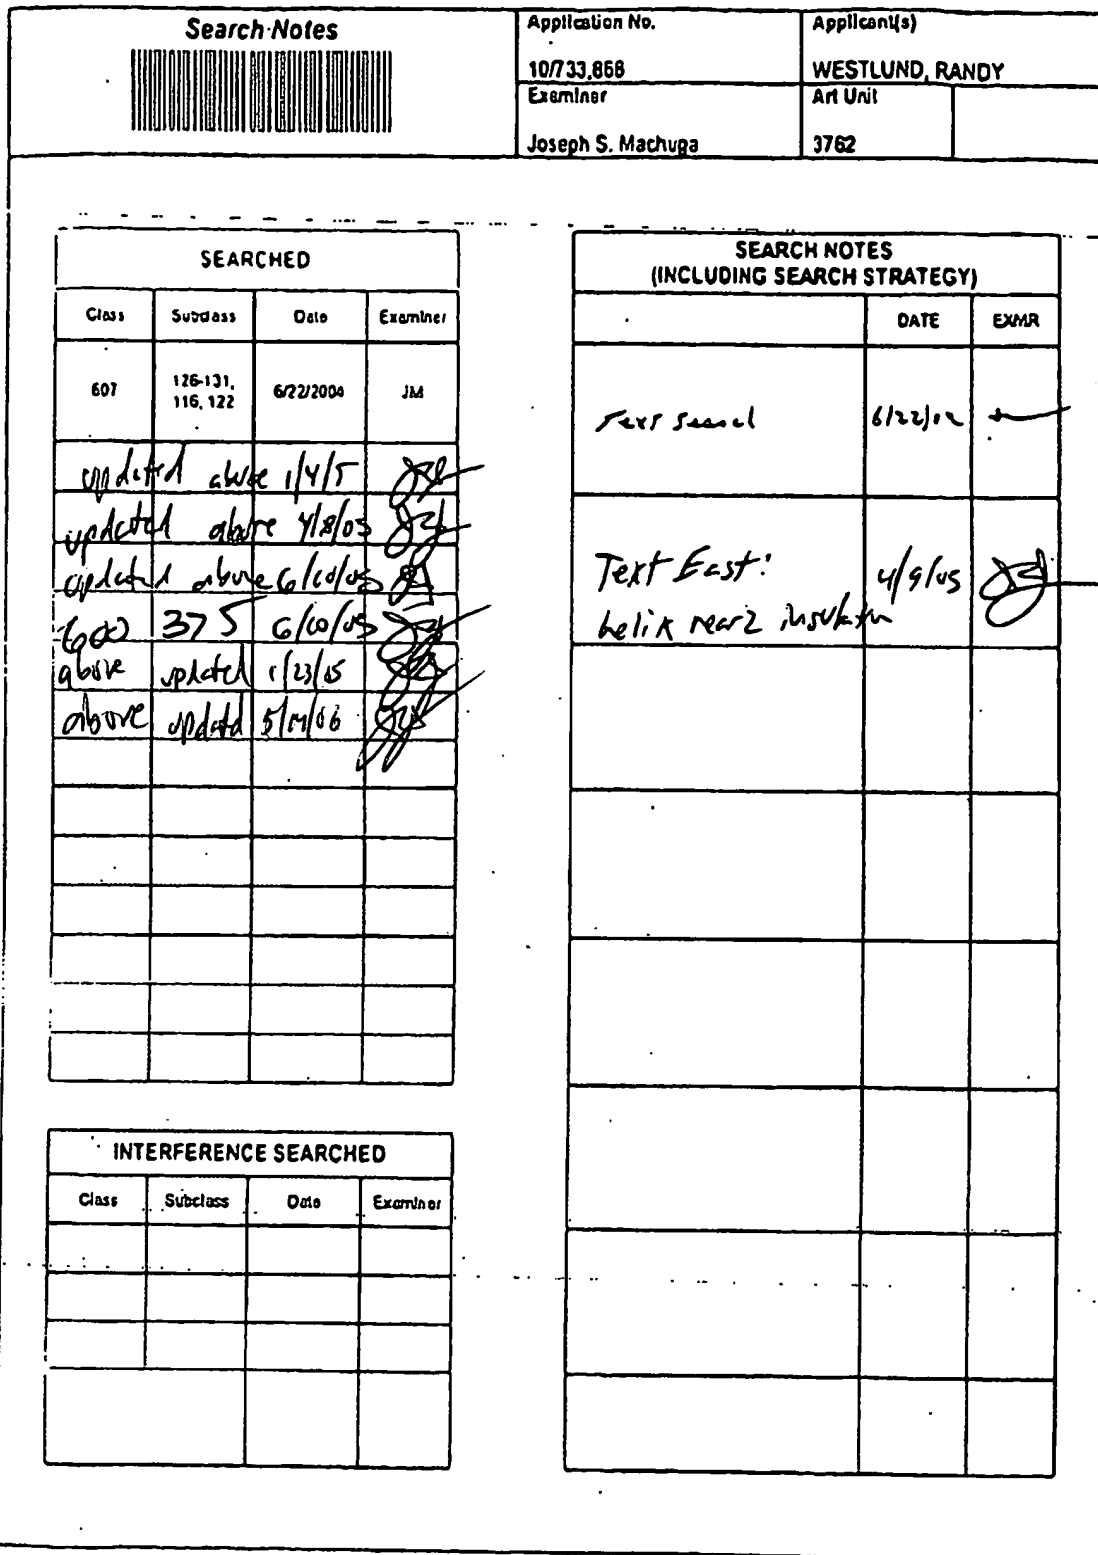 Search Notes
Application No.
Applicant(s)
10/733,868
WESTLUND, RANDY
Examiner
Art Unit
Joseph S. Machuga
3762
SEARCHED
Class Subclass Date Examiner
607 126-131, 116, 122 6/22/2004 JM
updated above 1/4/5
updated above 4/8/05
updated above 6/10/05
600 375 6/10/05
above updated 1/23/05
above updatd
INTERFERENCE SEARCHED
Class Subclass Date Examiner
SEARCH NOTES
(INCLUDING SEARCH STRATEGY)
DATE EXMR
Text search 6/22/
Text East: 4/9/05
helix near2 insulation